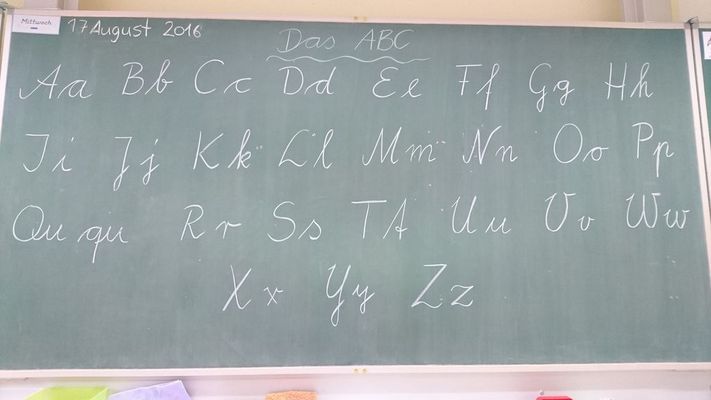 Mittwoch 17 August 2016
Das ABC
Aa Bb Cc Dd Ee Ff Gg Hh
Ii Jj Kk Ll Mm Nn Oo Pp
Qu qu Rr Ss Tt Uu Vv Ww
Xx Yy Zz